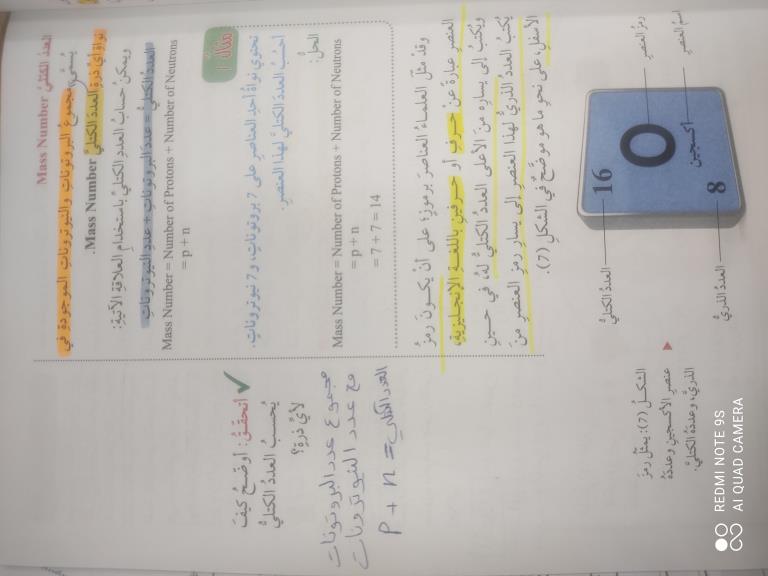 العدد الكتلي Mass Number
يُسمّى مجموع البروتونات والنيوترونات الموجودة في
نواة أي ذرة العدد الكتلي Mass Number.
ويمكن حساب العدد الكتلي باستخدام العلاقة الآتية:
العدد الكتلي = عدد البروتونات + عدد النيوترونات
Mass Number = Number of Protons + Number of Neutrons
= p + n
مثال 1
تحتوي نواة أحد العناصر على 7 بروتونات، و7 نيوترونات.
أحسب العدد الكتلي لهذا العنصر.
الحل:
Mass Number = Number of Protons + Number of Neutrons
= p + n
= 7 + 7 = 14
وقد مثّل العلماء العناصر برموز؛ على أن يكون رمز
العنصر عبارة عن حرف أو حرفين باللغة الإنجليزية،
ويُكتب إلى يساره من الأعلى العدد الكتلي له، في حين
يُكتب العدد الذري لهذا العنصر إلى يسار رمز العنصر من
الأسفل، على نحو ما هو موضّح في الشكل (7).
✔ أتحقق: أوضح كيف
يُحسب العدد الكتلي
لأي ذرة؟
مجموع عدد البروتونات
مع عدد النيوترونات
العدد الكتلي = p + n
العدد الكتلي
العدد الذري
16
8
O
أكسجين
رمز العنصر
اسم العنصر
الشكل (7): يمثل رمز
عنصر الأكسجين وعدده
الذري، وعدده الكتلي.
REDMI NOTE 9S
AI QUAD CAMERA